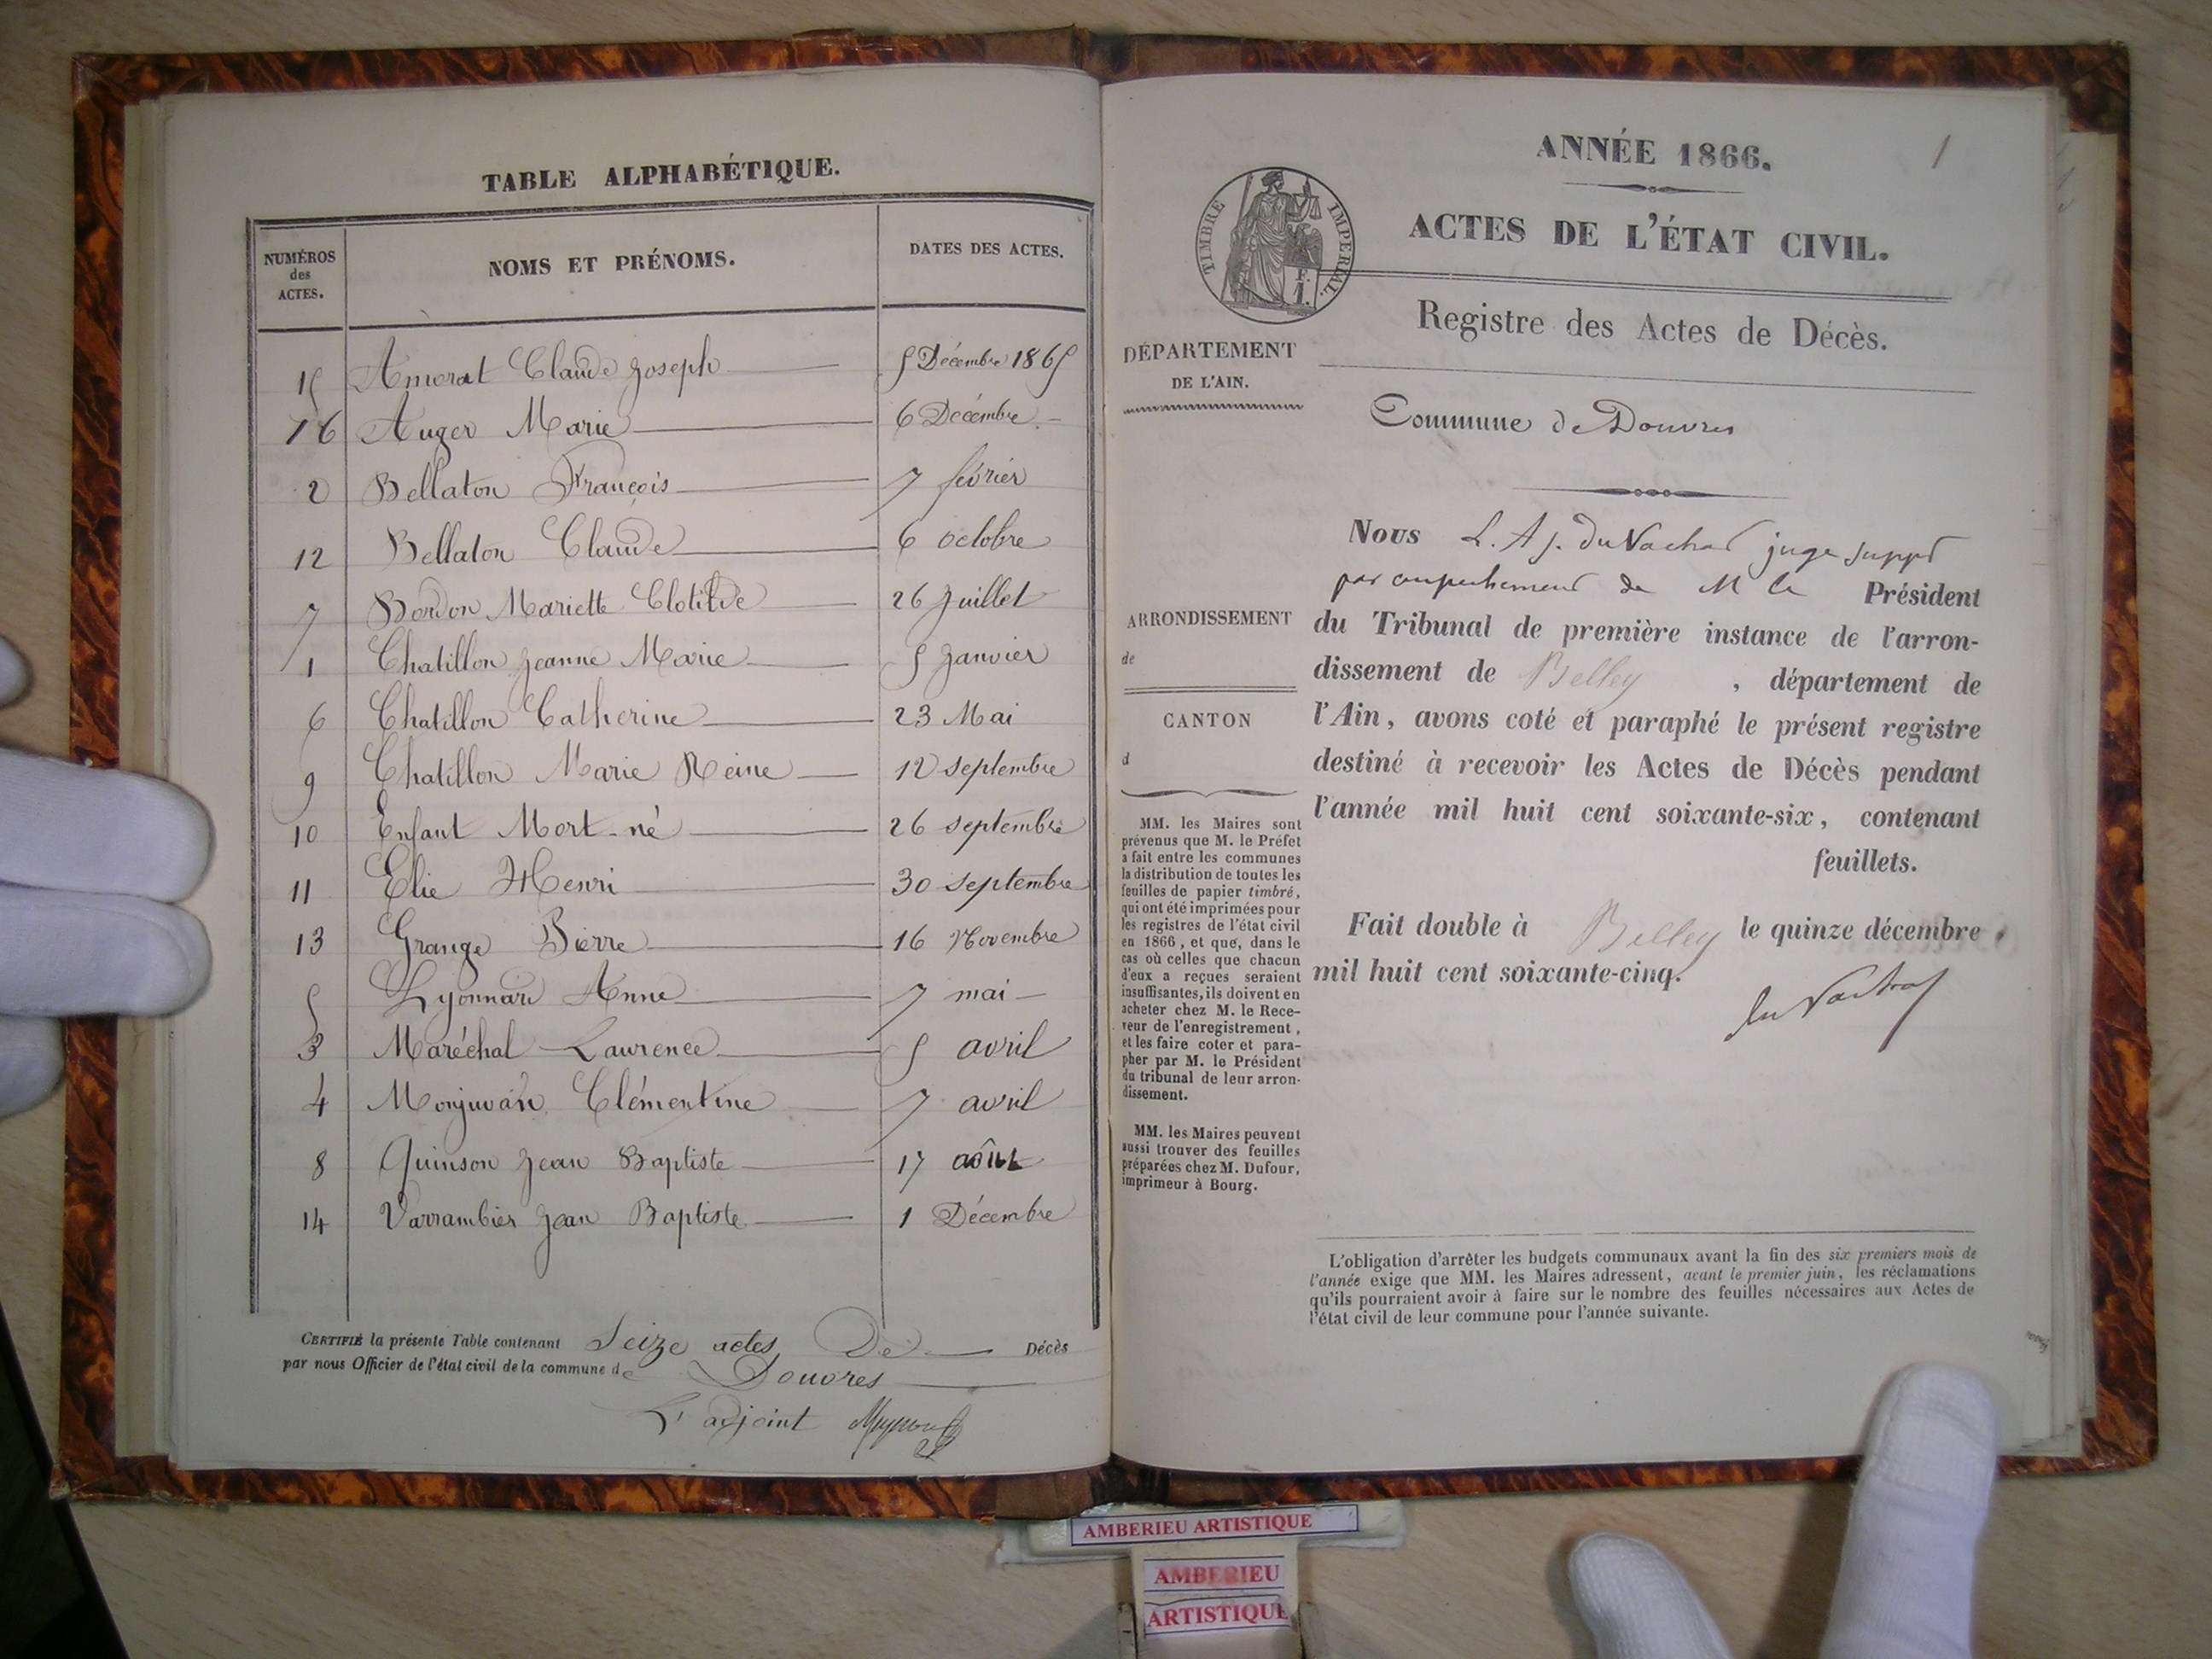 TABLE ALPHABÉTIQUE.
NUMÉROS des ACTES. NOMS ET PRÉNOMS. DATES DES ACTES.
15 Amorat Claude Joseph 5 Décembre 1865
16 Auger Marie 6 Décembre
2 Bellaton François 7 février
12 Bellaton Claude 6 octobre
7 Bordon Mariette Clotilde 26 Juillet
1 Chatillon Jeanne Marie 5 Janvier
6 Chatillon Catherine 23 Mai
9 Chatillon Marie Reine 12 septembre
10 Enfant Mort-né 26 septembre
11 Elie Henri 30 septembre
13 Grange Pierre 16 Novembre
5 Lyonnard Anne 7 mai
3 Maréchal Laurence 5 avril
4 Monjuvan Clémentine 7 avril
8 Quinson Jean Baptiste 17 août
14 Varrambier Jean Baptiste 1 Décembre
CERTIFIÉ la présente Table contenant Seize actes De Décès
par nous Officier de l'état civil de la commune de Douvres
L'adjoint
1
ANNÉE 1866.
TIMBRE IMPERIAL.
ACTES DE L'ÉTAT CIVIL.
Registre des Actes de Décès.
DÉPARTEMENT
DE L'AIN.
Commune de Douvres
ARRONDISSEMENT
de
CANTON
d
MM. les Maires sont
prévenus que M. le Préfet
a fait entre les communes
la distribution de toutes les
feuilles de papier timbré,
qui ont été imprimées pour
les registres de l'état civil
en 1866, et que, dans le
cas où celles que chacun
d'eux a reçues seraient
insuffisantes, ils doivent en
acheter chez M. le Rece-
veur de l'enregistrement,
et les faire coter et para-
pher par M. le Président
du tribunal de leur arron-
dissement.
MM. les Maires peuvent
aussi trouver des feuilles
préparées chez M. Dufour,
imprimeur à Bourg.
Nous L. A. J. du Vachat juge suppt
par empechement de M le Président
du Tribunal de première instance de l'arron-
dissement de Belley, département de
l'Ain, avons coté et paraphé le présent registre
destiné à recevoir les Actes de Décès pendant
l'année mil huit cent soixante-six, contenant
feuillets.
Fait double à Belley le quinze décembre
mil huit cent soixante-cinq.
du Vachat
L'obligation d'arrêter les budgets communaux avant la fin des six premiers mois de
l'année exige que MM. les Maires adressent, avant le premier juin, les réclamations
qu'ils pourraient avoir à faire sur le nombre des feuilles nécessaires aux Actes de
l'état civil de leur commune pour l'année suivante.
AMBERIEU ARTISTIQUE
AMBERIEU
ARTISTIQUE